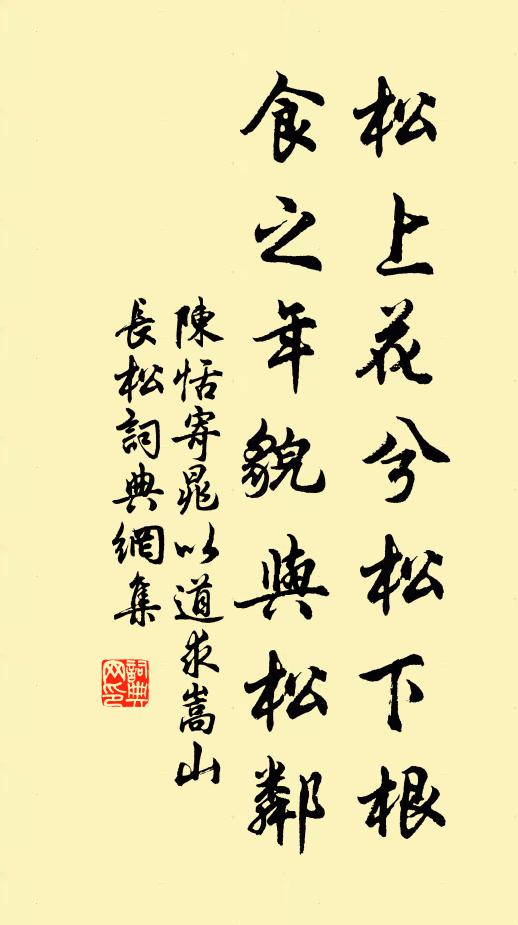 松上花兮松下根
食之年貌與松鄰
陳恬寄晁以道求嵩山
長松詞典網集
詞典网印